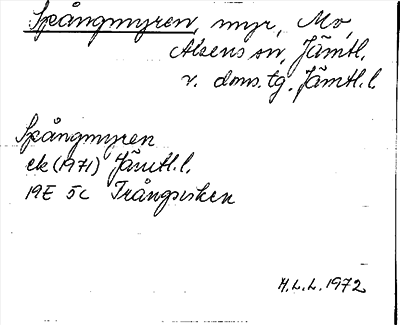 Spångmyren, myr, Mo,
Alsens sn, Jämtl.
v. doms.tg. Jämtl.l.
Spångmyren
ek (1971) Jämtl.l.
19E 5c Trångsviken
H.L.L. 1972